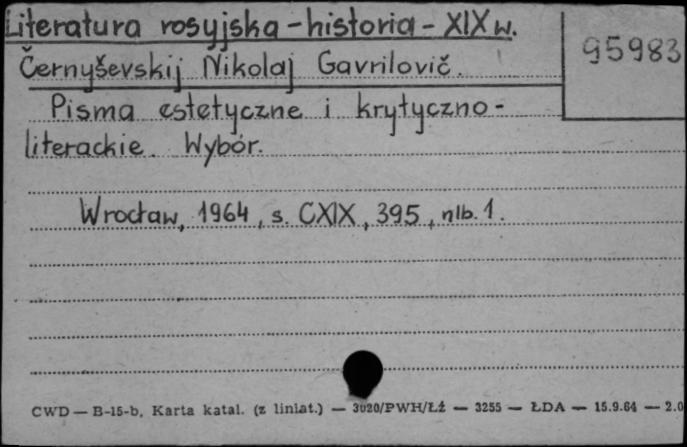 Literatura rosyjska - historia - XIX w.
95983
Černyševskij Nikolaj Gavrilovič.
Pisma estetyczne i krytyczno-
literackie. Wybór.
Wrocław, 1964, s. CXIX, 395, nlb. 1.
CWD — B-15-b, Karta katal. (z liniat.) — 3020/PWH/Łź — 3255 — ŁDA — 15.9.64 — 2.0